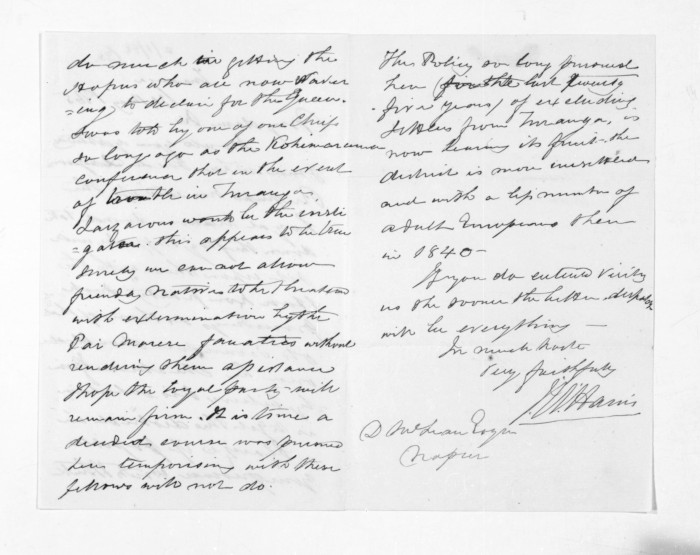 do much in getting the
Hapus who are now waver
=ing to declare for the Queen.
I was told by one of our Chiefs
so long ago as the Kohimarama
conference that in the event
of trouble in Turanga,
Lazarous would be the insti
=gator. this appears to be true
Surely we can not allow
friendly natives to be threatened
with extermination by the
Pai Marere fanatics without
rendering them assistance
I hope the loyal party will
remain firm. It is time a
decided course was pursued
here temporising with these
fellows will not do.
This Policy so long pursued
here (for the last twenty
five years) of excluding
settlers from Turanga, is
now bearing its fruit. the
district is more unsettled
and with a less number of
adult Europeans then
in 1840 -
If you do
us the sooner the better. dispatch
will be everything -
In much haste
Very faithfully
J W Harris
D McLean Esqre
Napier